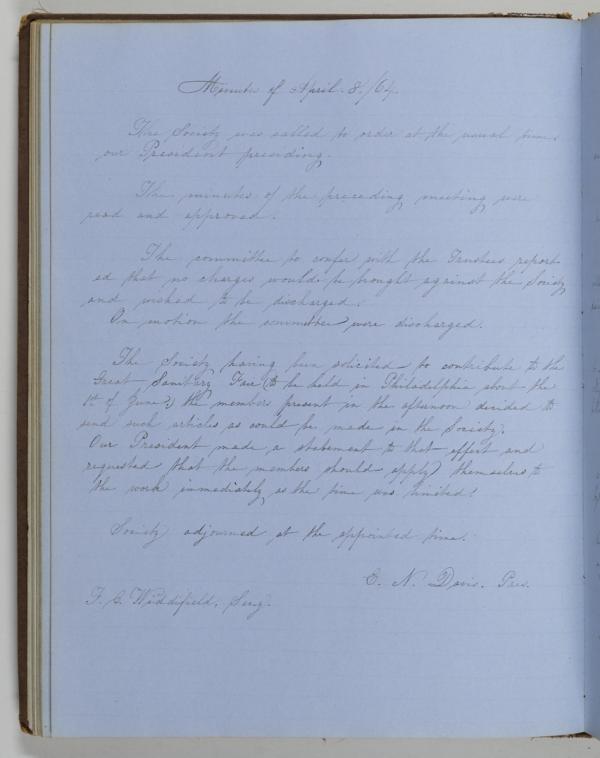 Minutes of April. 8./64.
The Society was called to order at the usual time.
our President presiding.
The minutes of the preceding meeting were
read and approved.
The committee to confer with the Trustees report-
ed that no charges would be brought against the Society
and wished to be discharged.
On motion the committee were discharged.
The Society having been solicited to contribute to the
Great Sanitary Fair (to be held in Philadelphia about the
1st of June,) the members present in the afternoon decided to
send such articles as could be made in the Society.
Our President made a statement to that effect and
requested that the members should apply themselves to
the work immediately, as the time was limited.
Society adjourned at the appointed time.
E. N. Davis. Pres.
Widdifield, Secy.